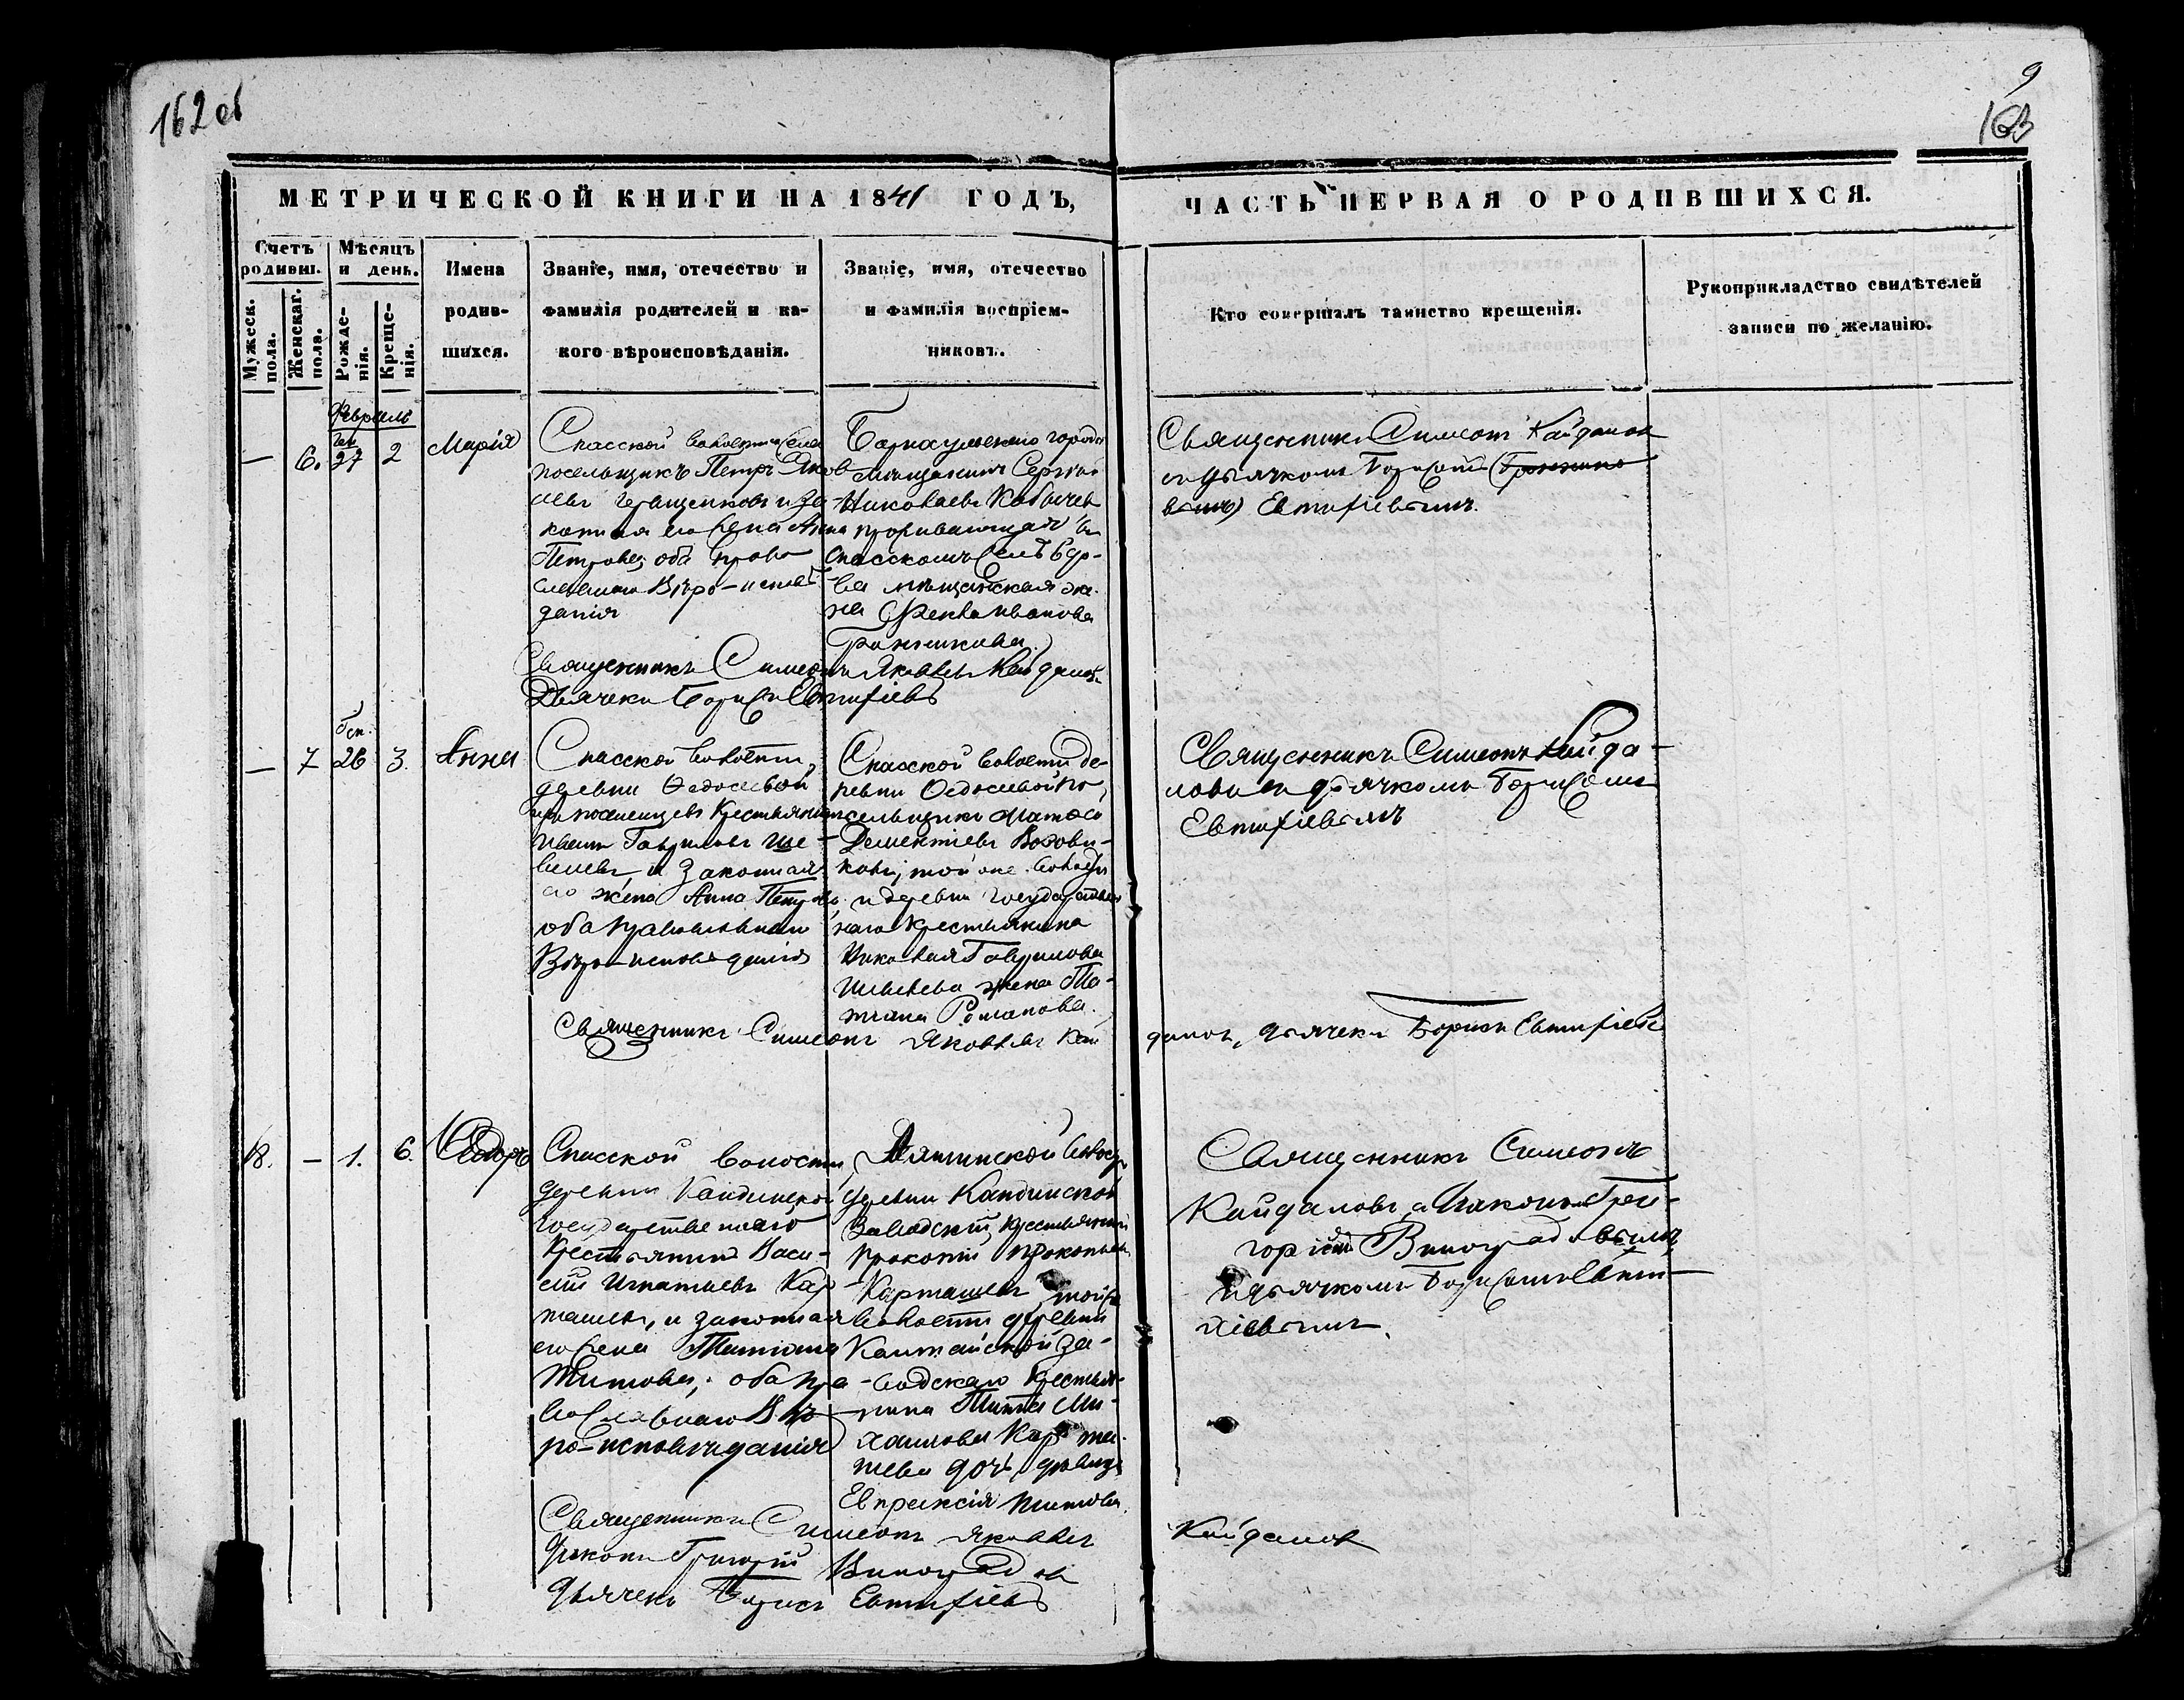 162 об
9
163
МЕТРИЧЕСКОЙ КНИГИ НА 1841 ГОДЪ,
ЧАСТЬ ПЕРВАЯ О РОДИВШИХСЯ.
Счетъ родивш.
Мужеск. пола.
Женскаг. пола.
Мѣсяцъ и день.
Рожде-
нія.
Креще-
нія.
Имена
родив-
шихся.
Званіе, имя, отечество и
фамилія родителей и ка-
кого вѣроисповѣданія.
Званіе, имя, отечество
и фамилія воспріем-
никовъ.
Кто совершалъ таинство крещенія.
Рукоприкладство свидѣтелей
записи по желанію.
Февраль
— 6. Ген 27 2 Марія
Спасской волости села
посельщикъ Петръ Яков
левъ и за-
конная его жена Анна
Петрова, оба право
славнаго Вѣро-испов
данія
города
Мѣщанинъ Сергѣй
Николаевъ
проживающая въ
Спасскомъ селѣ вдо-
ва мѣщанская же-
на Фекла Иванова
Священникъ Симеонъ Кайдалов
съ дьячкомъ Борисомъ
Евтифіевымъ.
Священникъ Симеонъ Яковлевъ Кайдаловъ
Дьячекъ Борисъ Евтифіевъ
— 7 Ген. 26 3. Анна
Спасской волости,
деревни Ѳедосѣевой
изъ поселенцевъ Крестьянинъ
Иванъ Гавриловъ Ше-
велевъ, и законная
его жена Анна Петрова,
оба православнаго
Вѣро-исповѣданія
Спасской волости де-
ревни Ѳедосѣевой по-
сельщикъ
Дементіевъ
ковъ, той же волости
и деревни государствен
наго крестьянина
Николая Гаврилова
Шевелева жена Та-
тіана Романова.
Священникъ Симеонъ Кайда-
ловъ съ дьячкомъ Борисомъ
Евтифіевымъ
Священникъ Симеонъ Яковлевъ Кай
даловъ, дьячекъ Борисъ Евтифіевъ
18. — 1. 6. Ѳедоръ
Спасской волости,
деревни Кандинской
государственнаго
Крестьянинъ Васи-
лій Игнатьевъ Кар-
ташевъ, и законная
его жена Татіана
Титова; оба пра-
вославнаго Вѣ-
ро-исповѣданія
волости
деревни Кандинской
Заводскій крестьянинъ
Прокопій Прокопьевъ
Карташевъ, той же
волости деревни
за-
водскаго Крестья-
нина Тита Ми-
хаилова Карта-
шева дочь, дѣвица
Евпраксія Титова.
Священникъ Симеонъ
Кайдаловъ, съ Діакономъ Гри-
горіемъ Виноградовымъ
и дьячкомъ Борисомъ Евти-
хіевымъ.
Священникъ Симеонъ Яковлевъ Кайдалов
Діаконъ Григорій Виноградовъ
Дьячекъ Борисъ Евтифіевъ